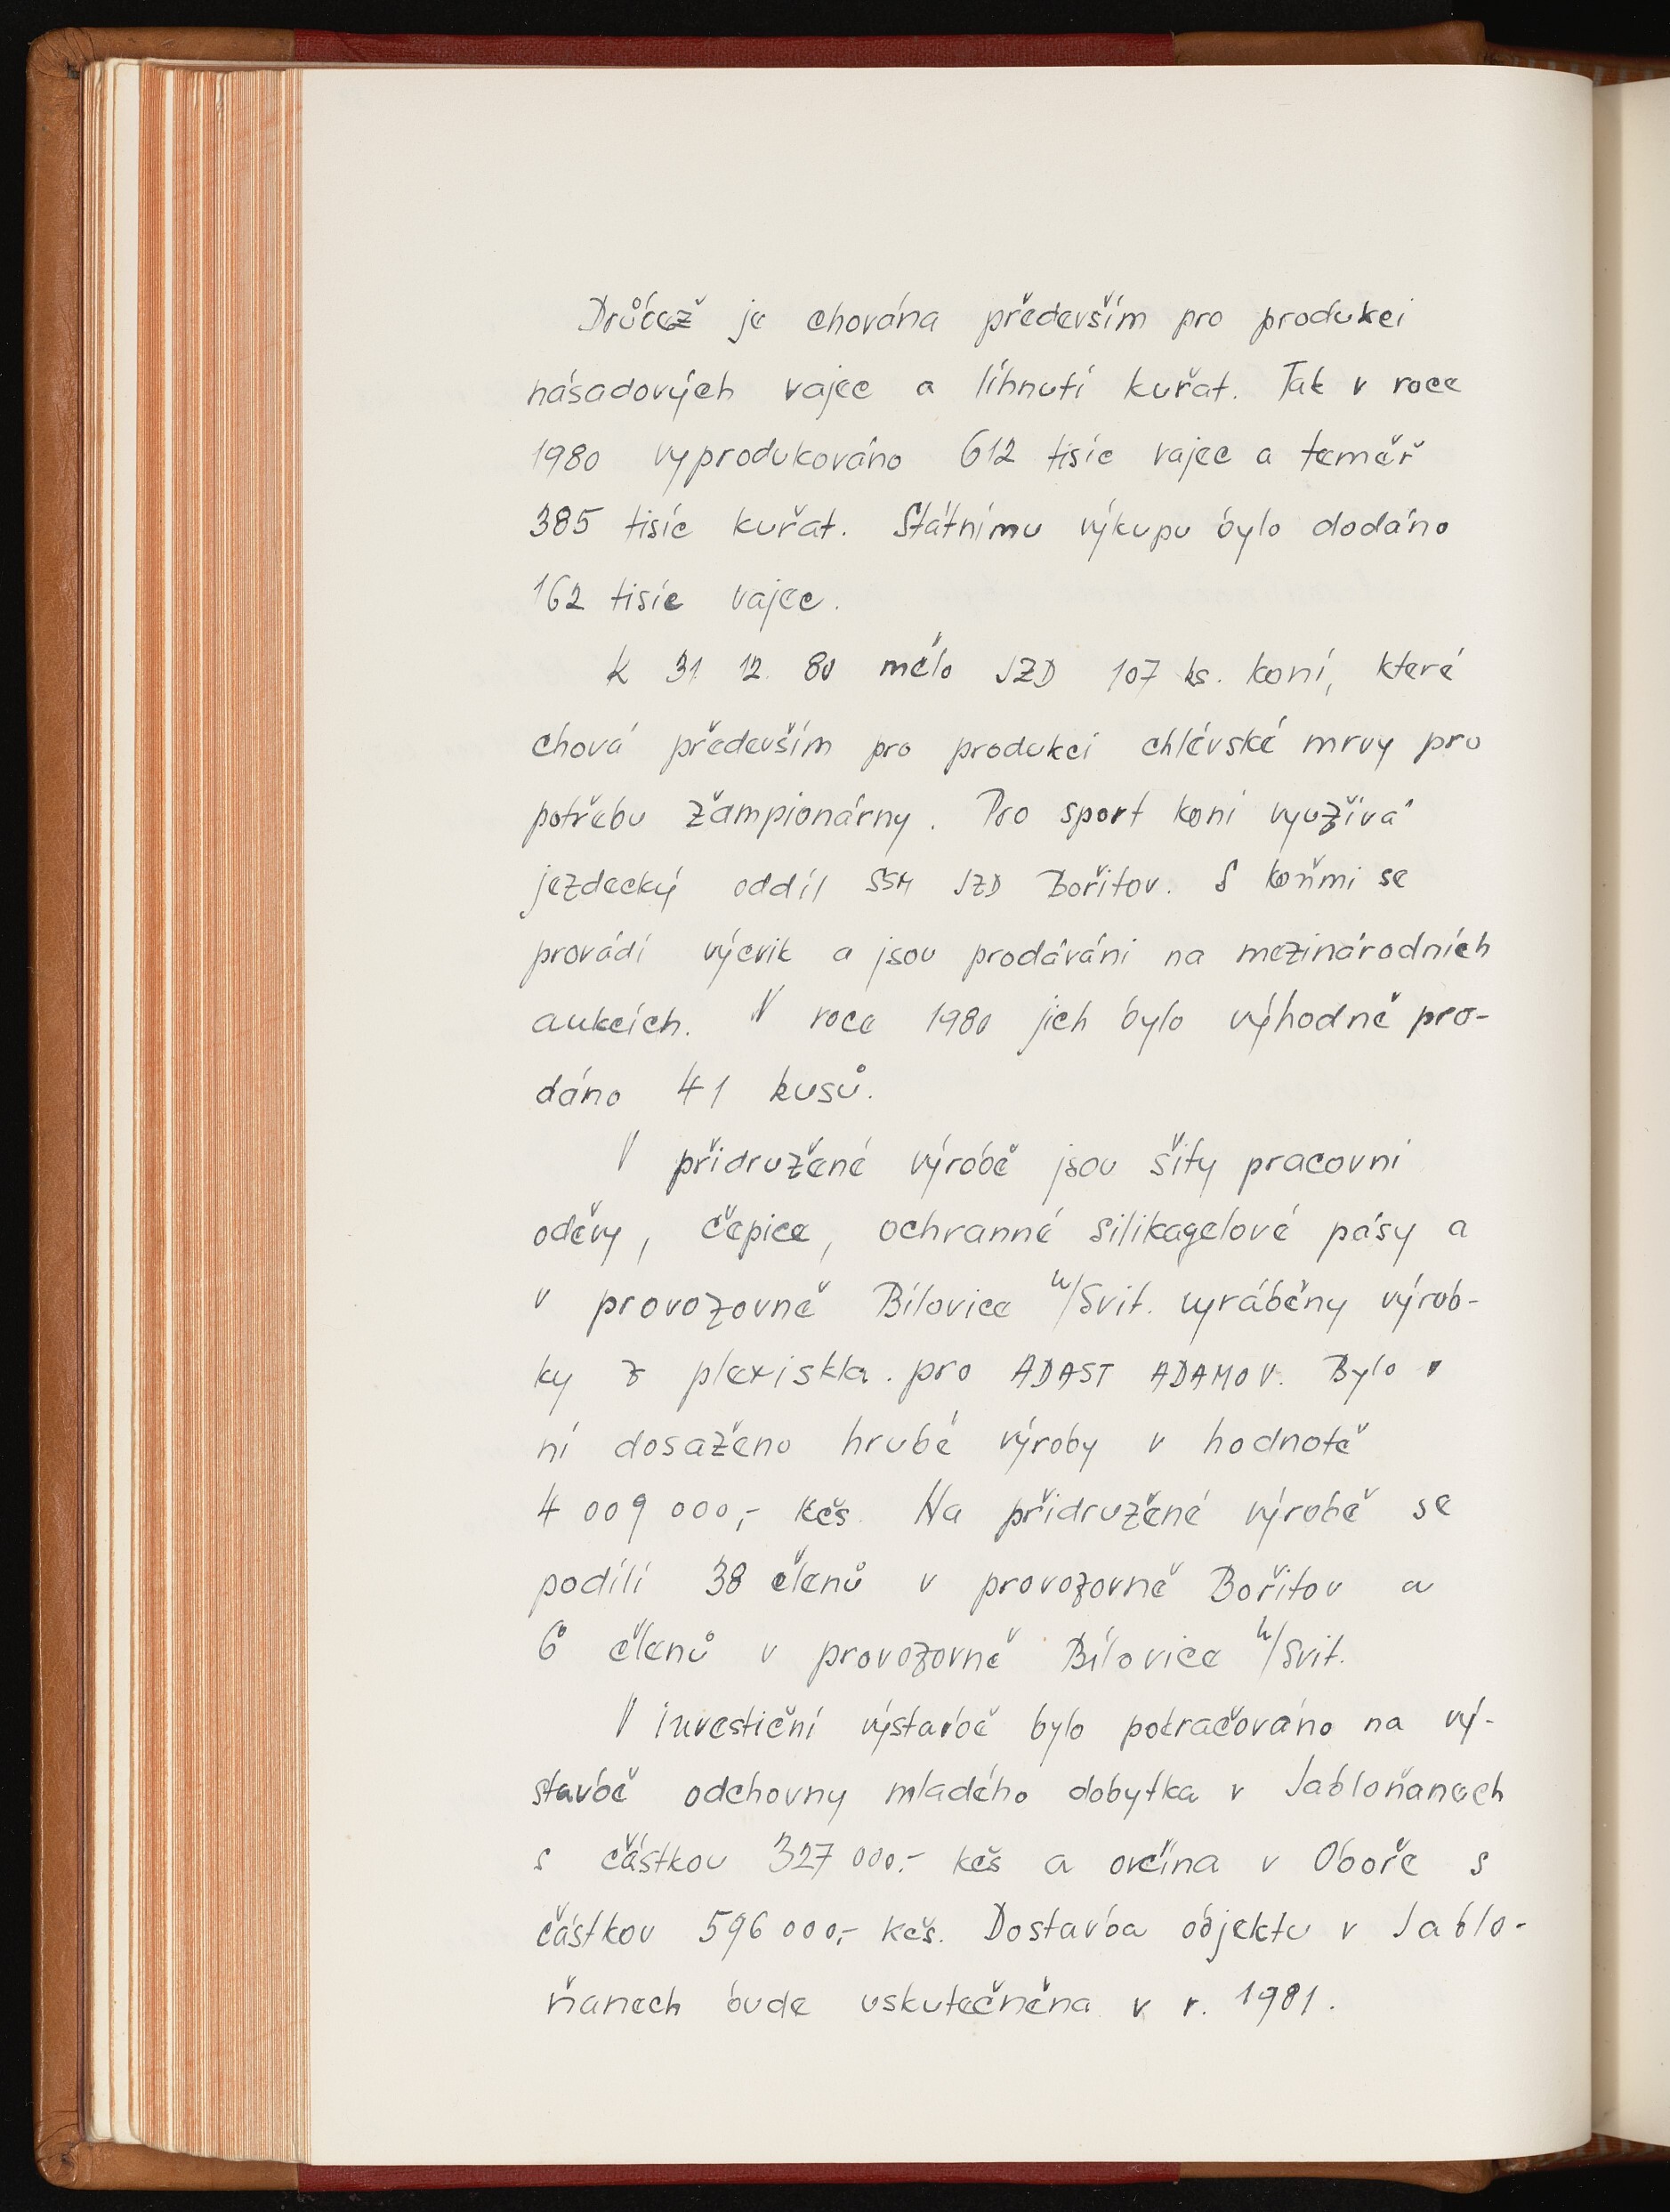 Drůbež je chována především pro produkci
násadových vajec a líhnutí kuřat. Tak v roce
1980 vyprodukováno 612 tisíc vajec a teměř
385 tisíc kuřat. Státnímu výkupu bylo dodáno
162 tisíc vajec.
K 31 12. 80 mělo JZD 107 ks. koní, které
chová především pro produkci chlévské mrvy pro
potřebu žampionárny. Pro sport koní využívá
jezdecký oddíl SSM JZD Bořitov. S koňmi se
provádí výcvik a jsou prodáváni na mezinárodních
aukcích. V roce 1980 jich bylo výhodně pro-
dáno 41 kusů.
V přidružené výrobě jsou šity pracovní
oděvy, čepice, ochranné silikagelové pásy a
v provozovně Bílovice n/Svit. vyráběny výrob-
ky z plexiskla pro ADAST ADAMOV. Bylo v
ní dosaženo hrubé výroby v hodnotě
4 009 000,- Kčs. Na přidružené výrobě se
podílí 38 členů v provozovně Bořitov a
6 členů v provozovně Bílovice n/Svit.
V investiční výstavbě bylo pokračováno na vý-
stavbě odchovny mladého dobytka v Jabloňanech
s částkou 327 000.- kčs a ovčína v Oboře s
částkou 596 000,- kčs. Dostavba objektu v Jablo-
ňanech bude uskutečněna v r. 1981.